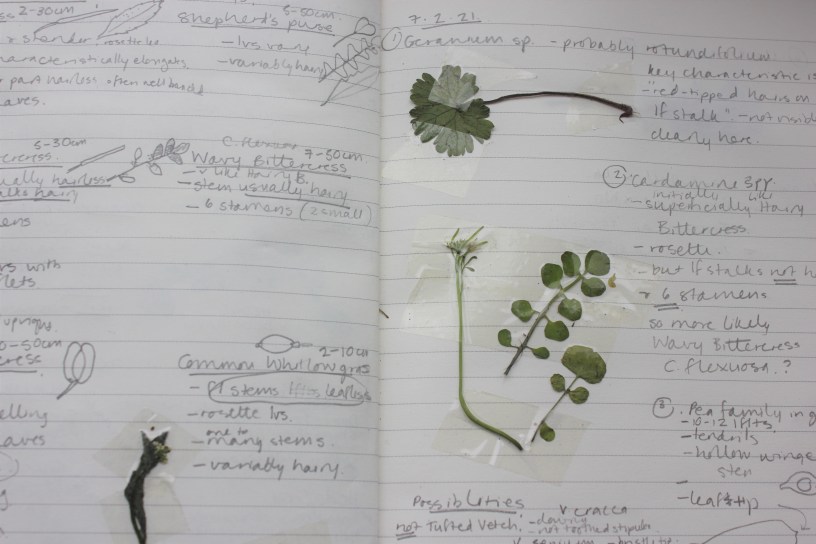 2-30cm
slender, rosette lvs
characteristically elongate
part hairless often well branched
aves.
5-50cm
Shepherd's purse
- lvs vary
- variably hairy
5-30cm
ercress.
ually hairless
alks hairy
ens
C. flexuosa
7-50cm
Wavy Bittercress
- v like Hairy B.
- stem usually hairy
- 6 stamens (2 small)
rs with
flets
upright
0-50cm
cress
elling
aves
2-10cm
Common Whitlowgrass
- fl stems leafless
- rosette lvs.
- one to many stems.
- variably hairy.
7.2.21.
① Geranium sp. - probably rotundifolium
key characteristic is
"red-tipped hairs on
lf stalk" - not visible
clearly here.
② Cardamine spp
initially like
- superficially Hairy
Bittercress
- rosette.
- but lf stalks not h
& 6 stamens
so more likely
Wavy Bittercress
C. flexuosa.?
③. Pea family in g
- 10-12 lflts
- tendrils
- hollow winge
stem
- leaf tip
Possiblities
not Tufted Vetch,
V cracca
- downy
- not toothed stipules
V. sepium - bristlier